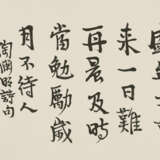 盛
来一日難
再晨及時
當勉勵歲
月不待人
陶淵明詩句